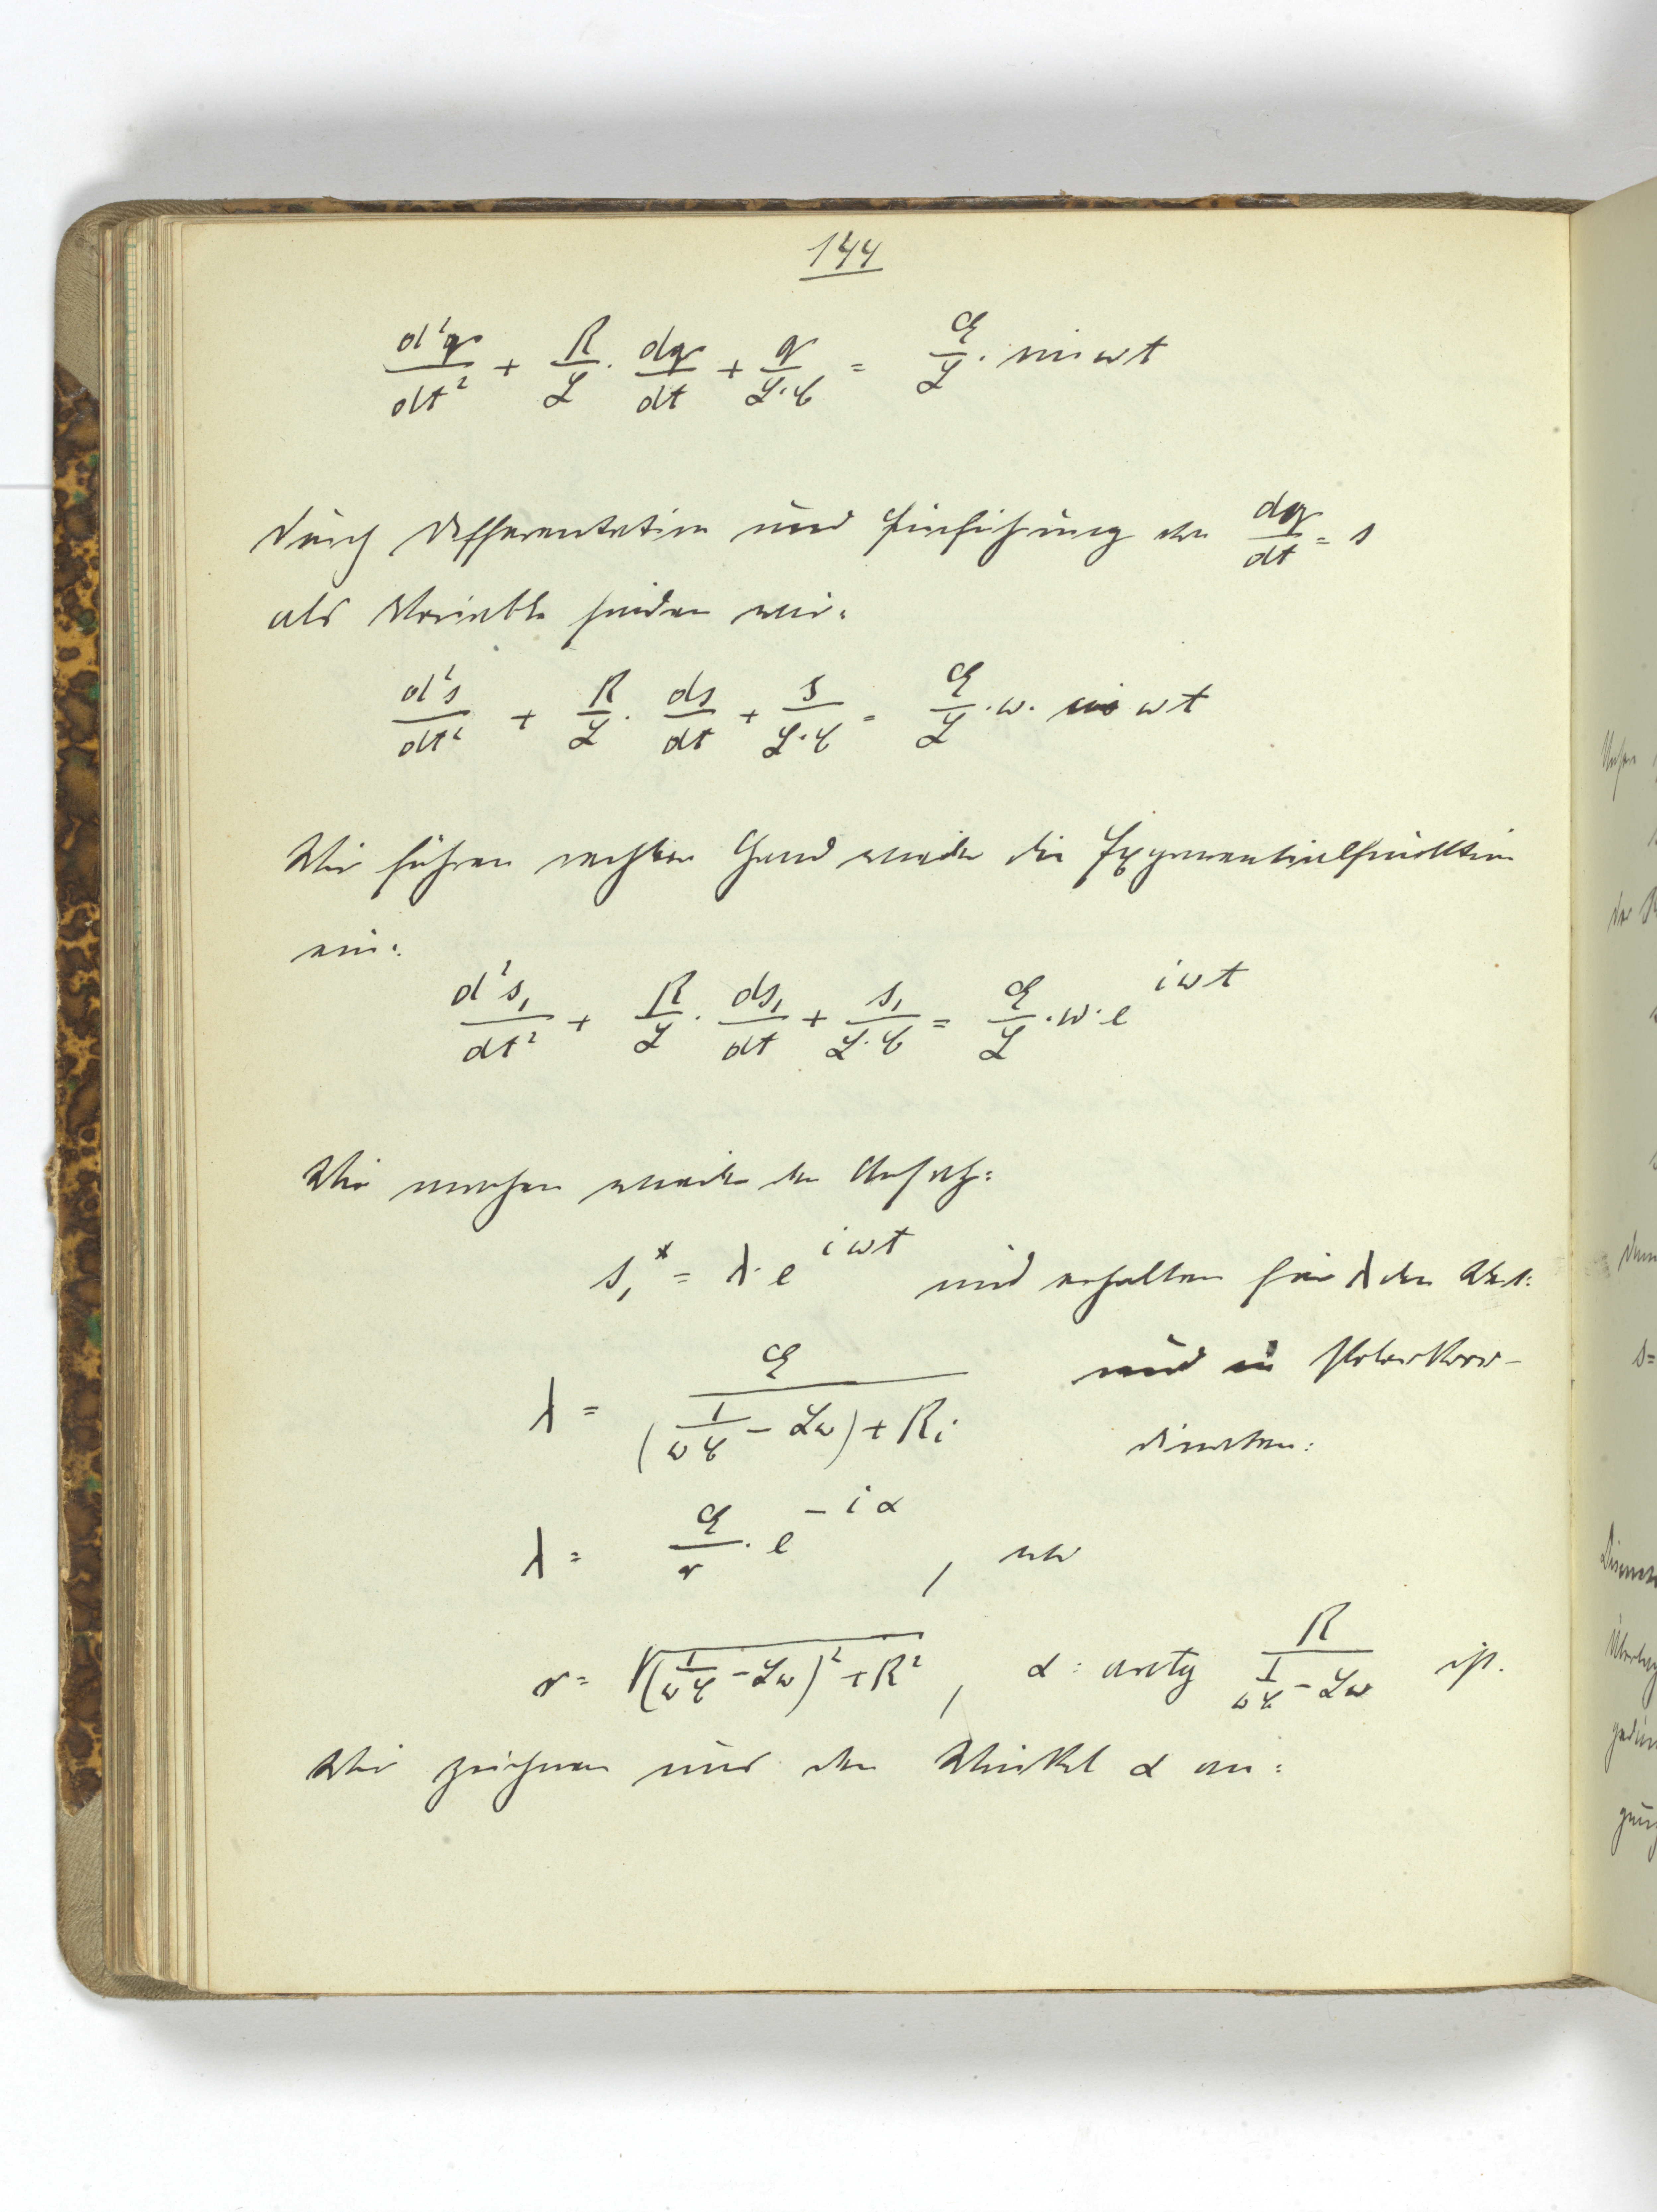 144
d²q/dt² + R/L · dq/dt + q/L·C = E/L · sin ωt
Durch Differentation und Einführung von dq/dt = s
als Variable finden wir:
d²s/dt² + R/L · ds/dt + s/L·C = E/L · ω · ωt
Wir führen rechter Hand wieder die Exponentialfunktion
ein:
d²s₁/dt² + R/L · ds₁/dt + s₁/L·C = E/L · ω · e^iωt
Wir machen wieder den Ansatz:
s₁* = λ · e^iωt und erhalten für λ den Wert:
λ = E/((1/ωC − Lω) + Ri) und in Polarkoor-
dinaten:
λ = E/r · e^−iα, wo
r = √((1/ωC − Lω)² + R²), α = arctg R/(1/ωC − Lω) ist.
Wir zeichnen uns den Winkel α an: